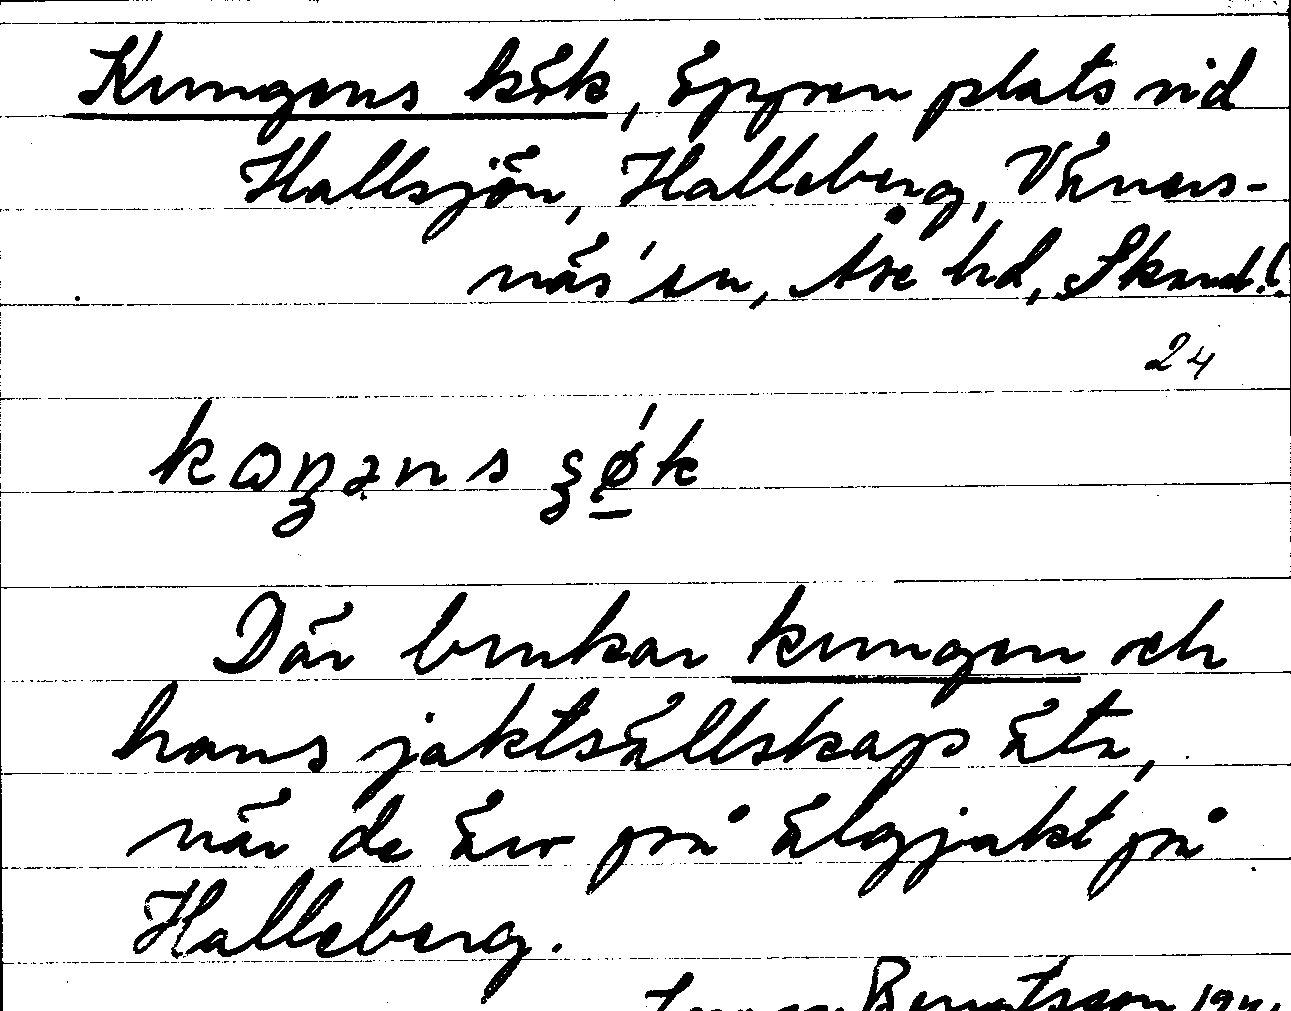 Kungens kök, öppen plats vid
Hallsjön, Halleberg, Väners-
näs sn, Åse hd, Skarab.l.
24
Där brukar kungen och
hans jaktsällskap äta,
när de äro på älgjakt på
Halleberg.
Bengtsson